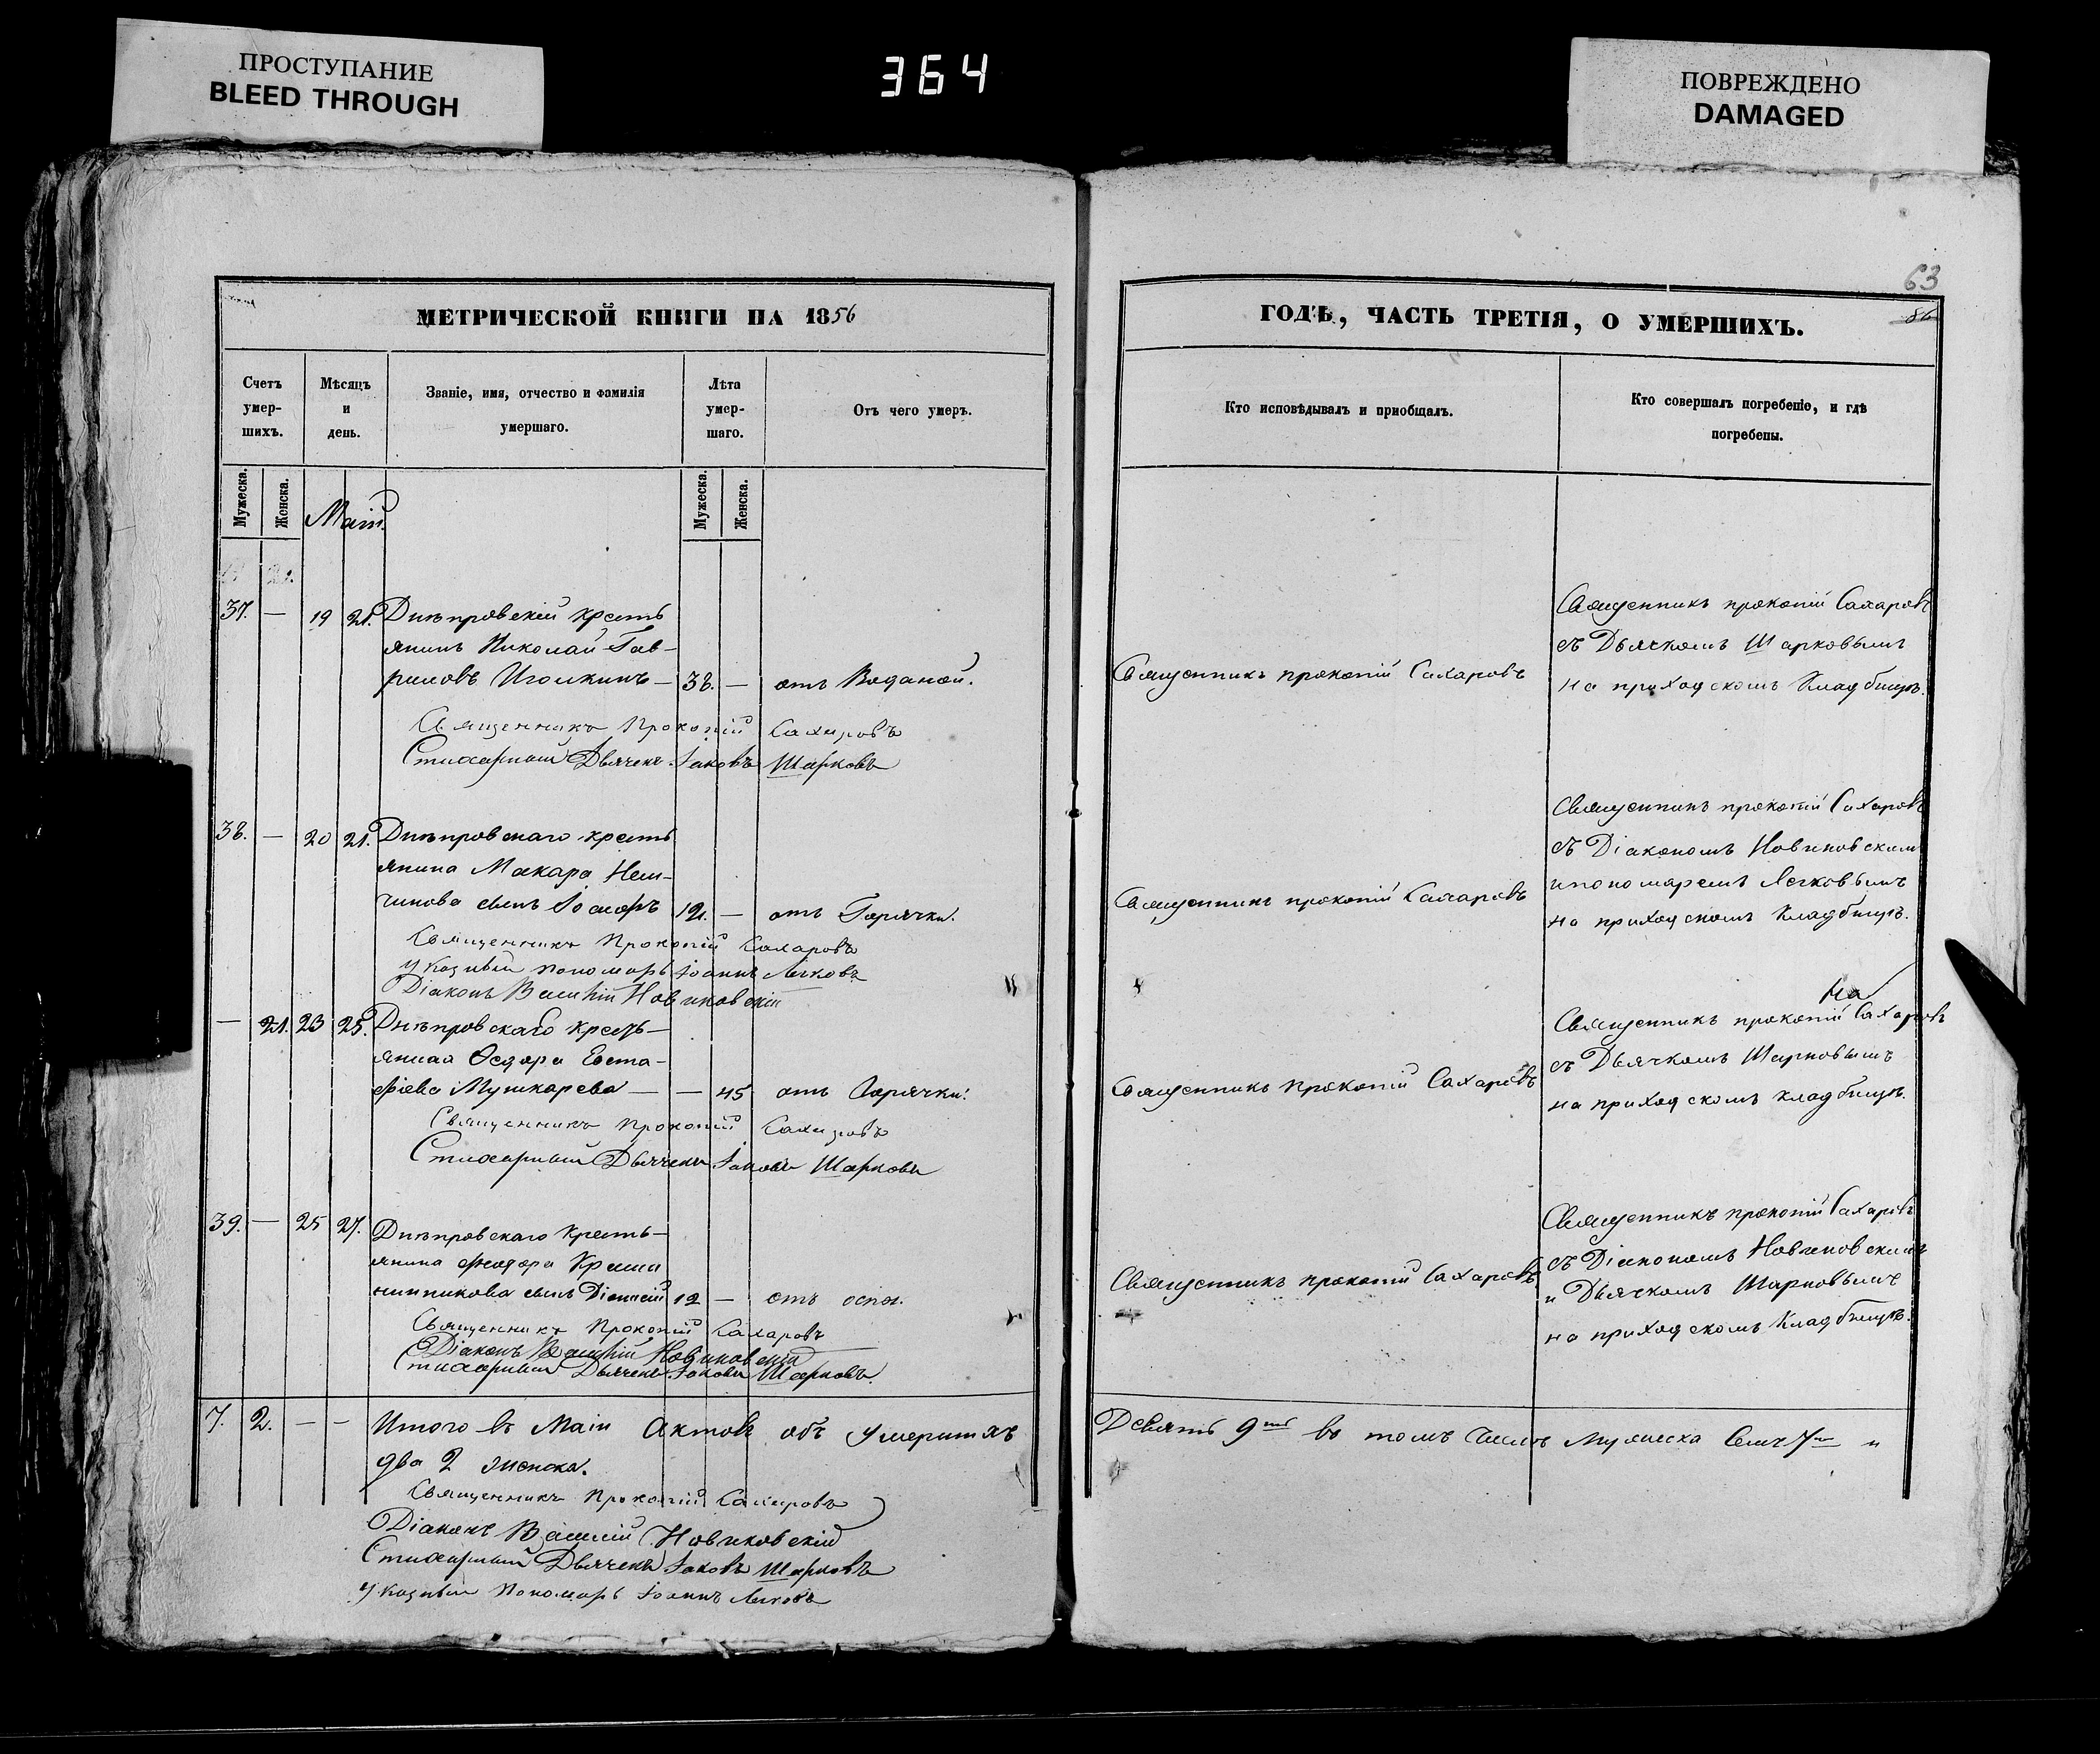 ПРОСТУПАНИЕ
BLEED THROUGH
364
ПОВРЕЖДЕНО
DAMAGED
МЕТРИЧЕСКОЙ КНИГИ НА 1856
Счетъ умер-шихъ.
Мѣсяцъ и день.
Званіе, имя, отчество и фамилія умершаго.
Лѣта умер-шаго.
Отъ чего умеръ.
Мужеска.
Женска.
Маій
Мужеска.
Женска.
37. — 19 21. Днѣпровскій кресть
янинъ Николай Гав-
риловъ Иголкинъ — 38. — отъ Водяной.
Священникъ Прокопій Сахаровъ
Стихарный Дьячекъ Іаковъ Шарковъ
38. — 20 21. Днѣпровскаго кресть
янина Макара Нем-
чинова сынъ Іосифъ 12. — отъ Горячки.
Священникъ Прокопій Сахаровъ
Указный пономарь Іоаннъ Легковъ
Діаконъ Василій Новиковскій
— 21. 23 25. Днѣпровскаго кресть-
Ѳедора Евста-
фіева Мушкарева — — 45 отъ Горячки.
Священникъ Прокопій Сахаровъ
Стихарный Дьячекъ Іаковъ Шарковъ
39. — 25 27. Днѣпровскаго Кресть-
янина Феодора Краши
нинникова сынъ Діонисій 12 — отъ оспы.
Священникъ Прокопій Сахаровъ
Діаконъ Василій Новиковскій
Стихарный Дьячекъ Іаковъ Шарковъ.
7. 2. — — Итого въ Маіи Актовъ объ умершихъ
два 2 женска.
Священникъ Прокопій Сахаровъ
Діаконъ Василій Новиковскій
Стихарный Дьячекъ Іаковъ Шарковъ
Указный Пономарь Іоаннъ Легковъ
63
ГОДЪ, ЧАСТЬ ТРЕТІЯ, О УМЕРШИХЪ.
Кто исповѣдывалъ и пріобщалъ.
Кто совершалъ погребеніе, и гдѣ
погребены.
Священникъ прокопій Сахаровъ
Священникъ прокопій Сахаровъ
съ Дьячкомъ Шарковымъ
на приходскомъ Кладбищѣ.
Священникъ прокопій Сахаровъ
Священникъ прокопій Сахаровъ
съ Діакономъ Новиковскимъ
и пономаремъ Легковымъ
на приходскомъ Кладбищѣ.
Священникъ прокопій Сахаровъ
Священникъ прокопій Сахаровъ
съ Дьячкомъ Шарковымъ
на приходскомъ кладбищѣ.
Священникъ прокопій Сахаровъ
Священникъ прокопій Сахаровъ
съ Діакономъ Новиковскимъ
и Дьячкомъ Шарковымъ
на приходскомъ Кладбищѣ.
Девять 9ть въ томъ числѣ мужеска Семь 7мь и